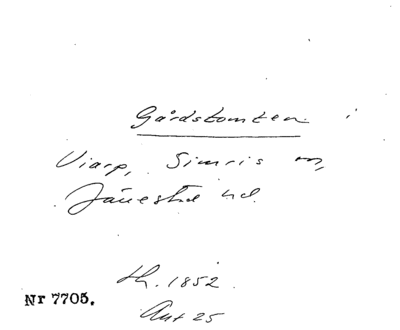 Gårdstomten i
Viarp, Simris sn,
Järrestad hd.
th. 1852.
Ant 25
Nr 7705.